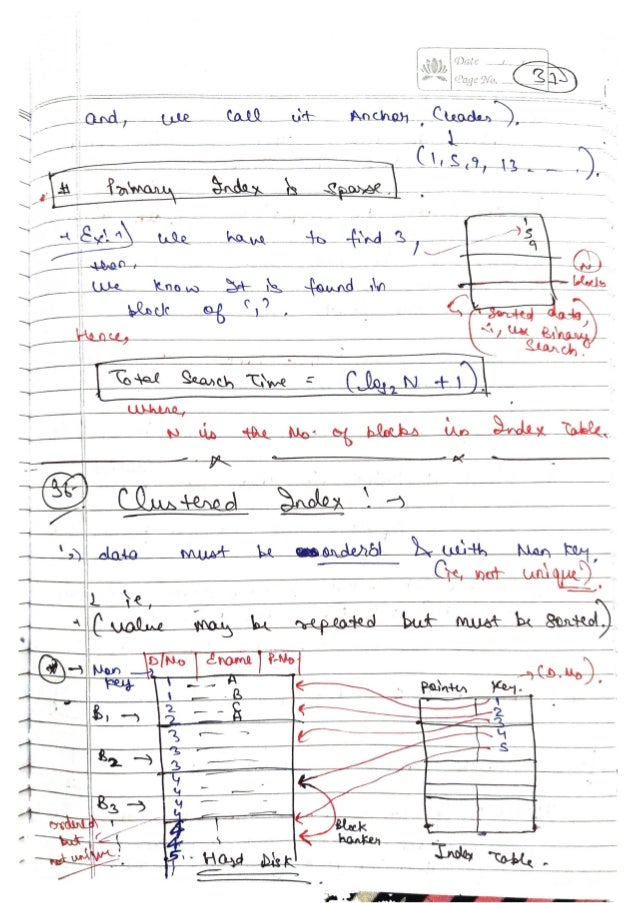 Date
Page No. 32
and, we call it Anchor. (leader).
↓
(1, 5, 9, 13 - - - .).
# Primary Index is sparse.
→ Ex:1) we have to find 3,
then,
we know It is found in
block of '1'.
1
5
9
N
blocks
Sorted data,
∴, use Binary
Search.
Hence,
Total Search Time = (log₂ N + 1).
where,
N is the No. of blocks in Index Table.
36. Clustered Index :→
data must be ordered & with Non key.
(ie, not unique).
↓ ie,
→ (value may be repeated but must be sorted.)
→ Non key
D/No Ename P.No
1 - - A
1 - B
B₁ → 2 - C
2 - A
3
B₂ → 3
3
4
4
B₃ → 4
5
ordered
but
not unique
Hard Disk
Block
hanker
→ (D.No).
Pointer Key.
1
2
3
4
5
Index Table.